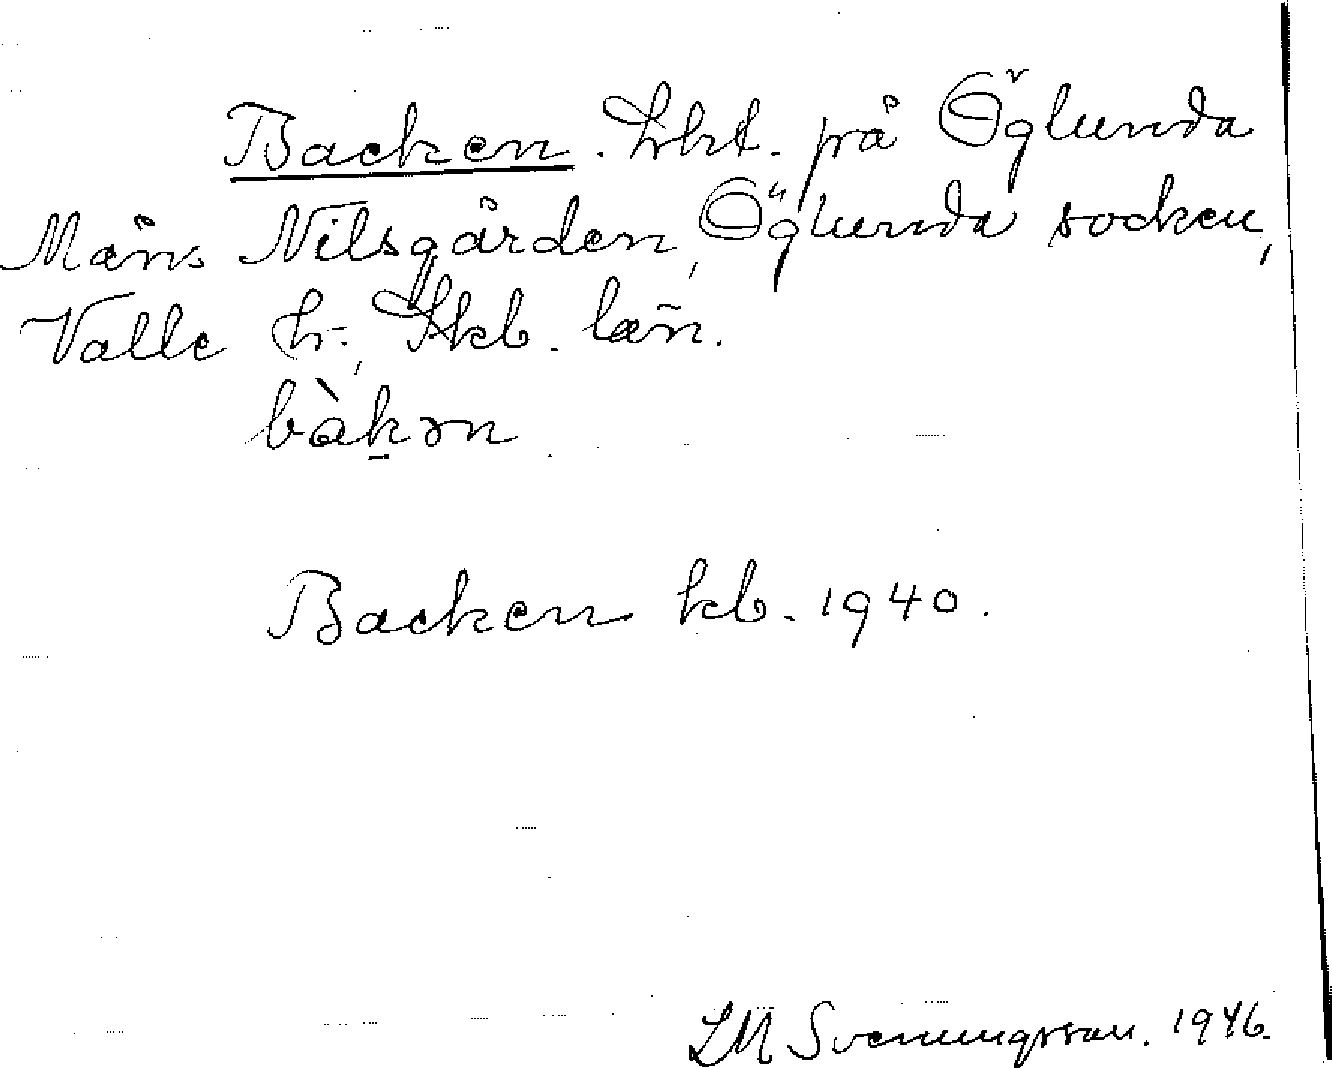 Backen. Lht. på Öglunda
Måns Nilsgården, Öglunda socken,
Valle hr., Skb. län.
bàkən
Backen kb. 1940.
LM Svenungsson. 1946.